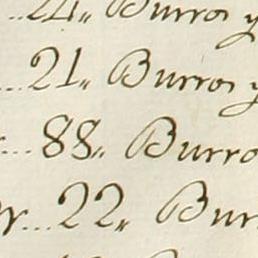 ...24,, Burros y
...21,, Burros y
...88,, Burro
...22,, Bur